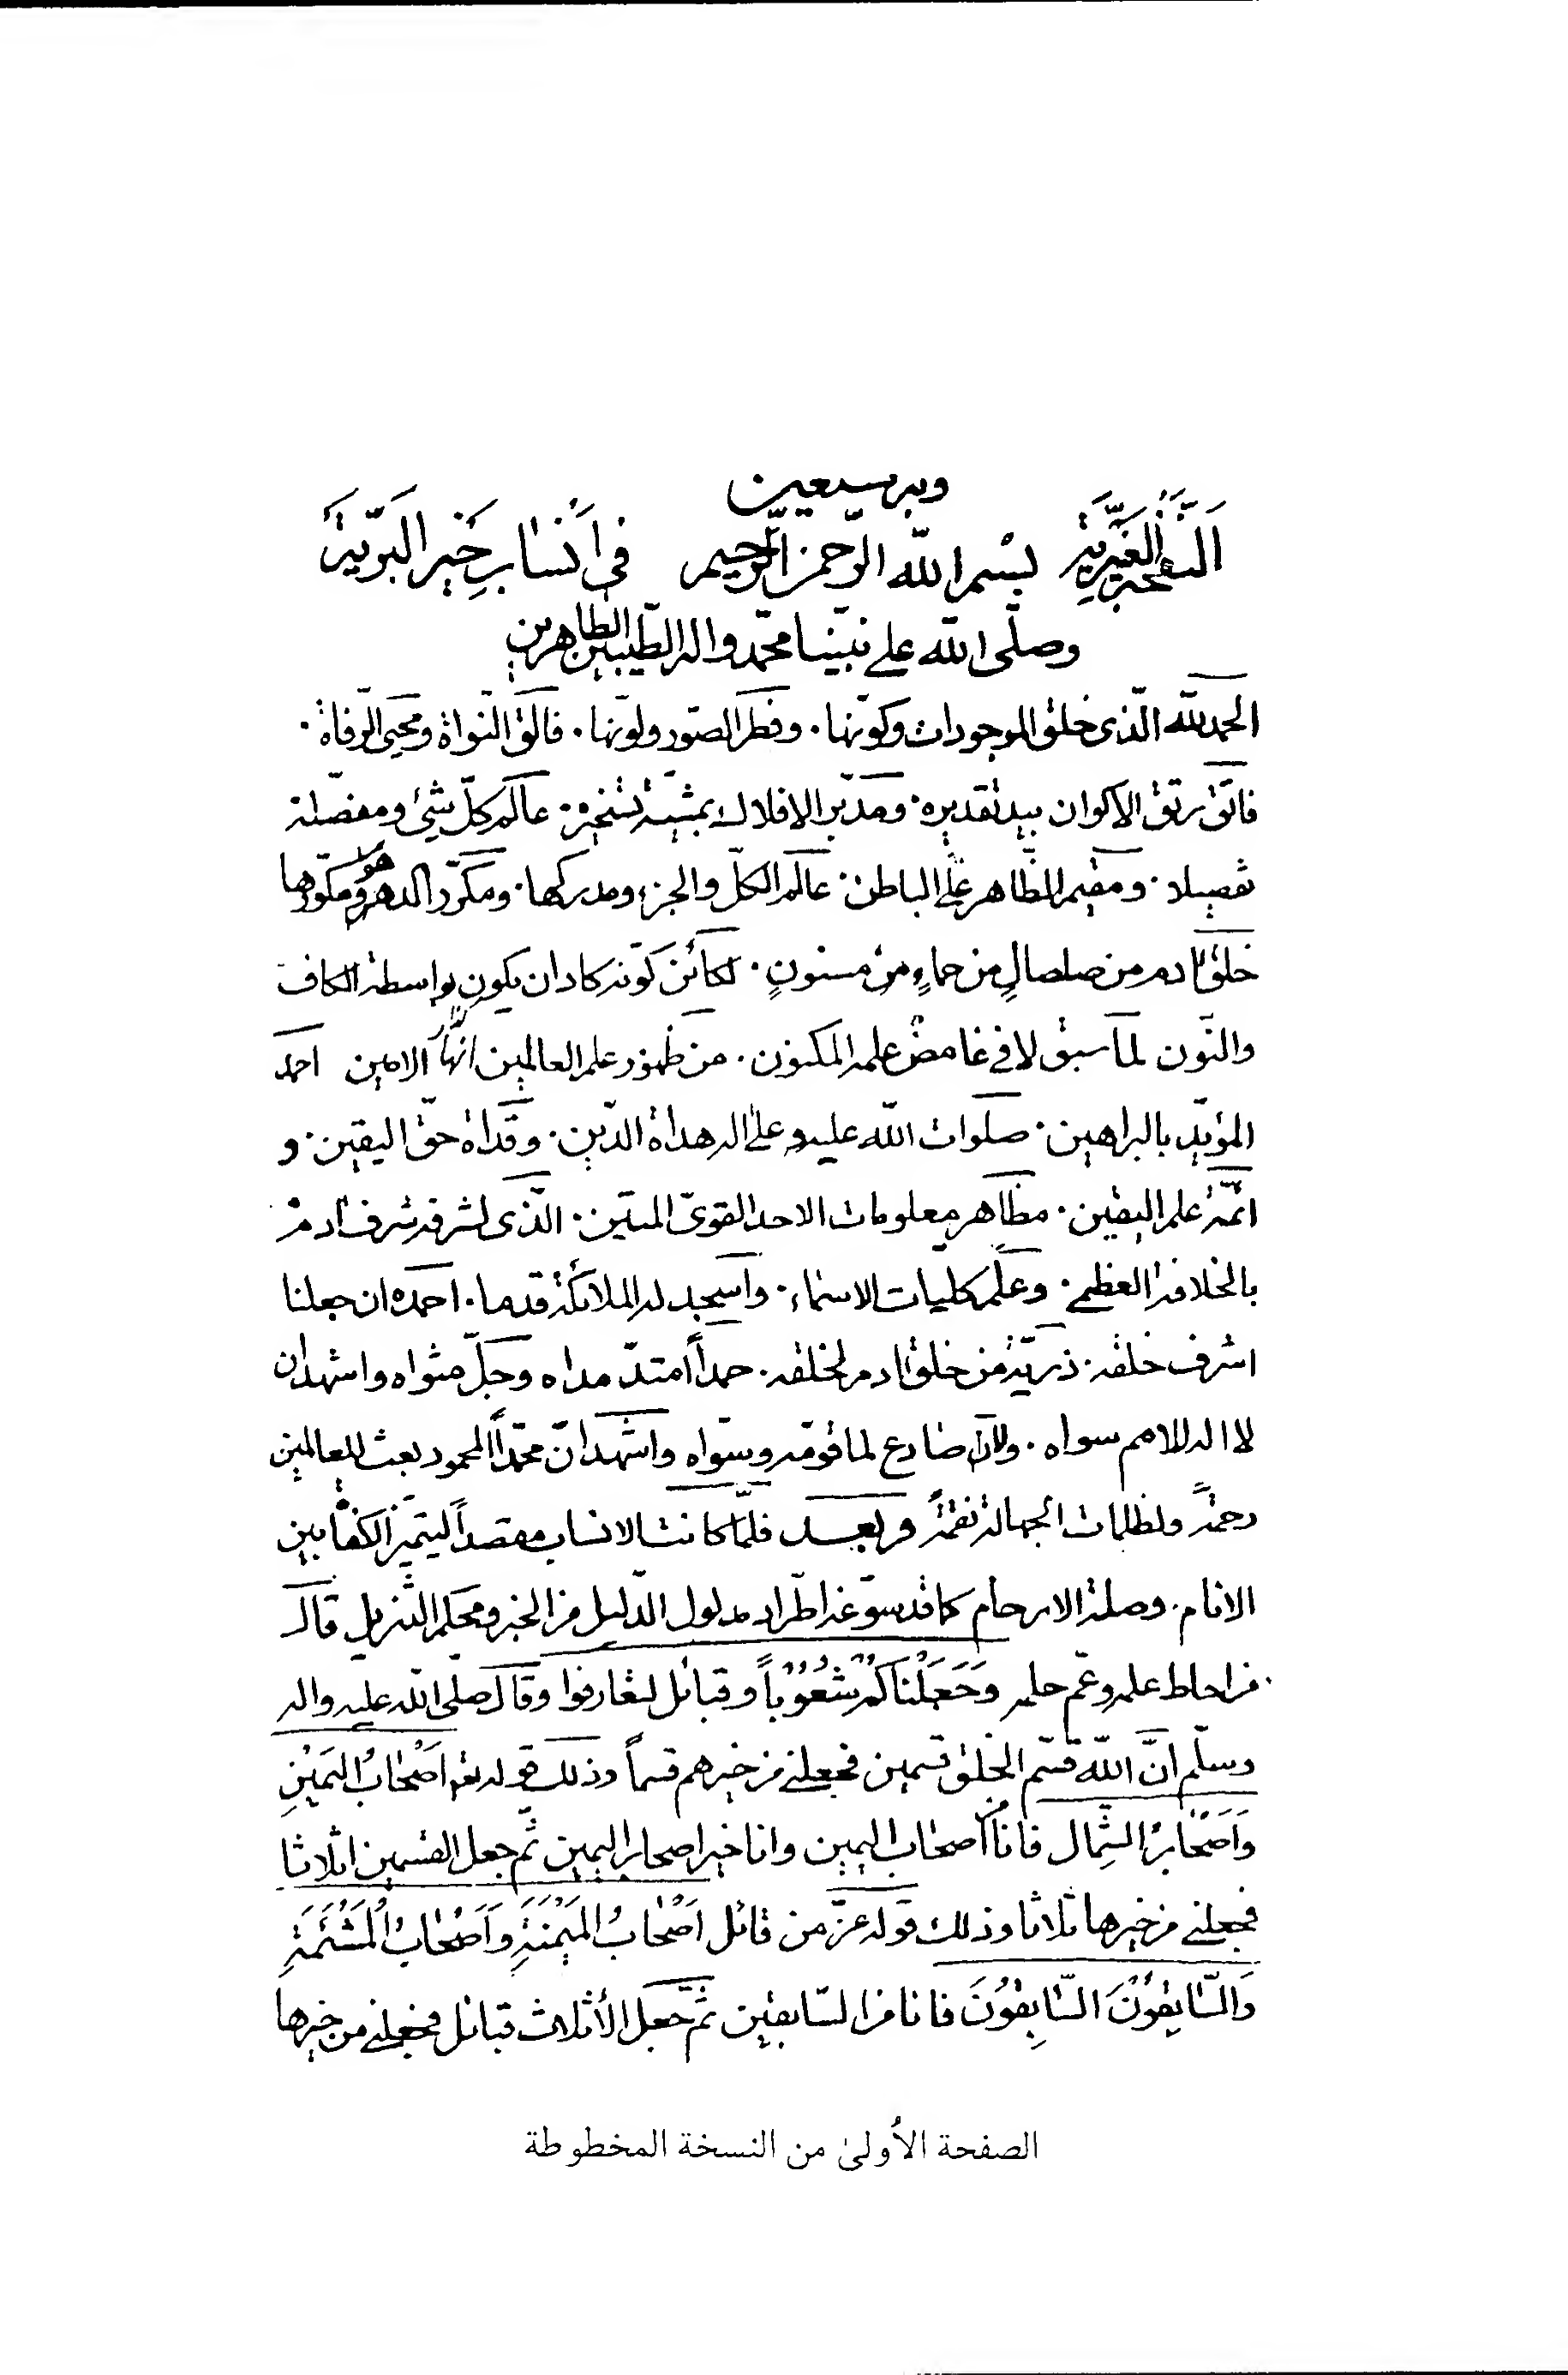 وبه نستعين
النَّفْحَةُ العَنْبَرِيَّةُ بسم الله الرّحمن الرّحيم في أَنْسَابِ خَيْرِ البَرِيَّة
وصلّى الله على نبيّنا محمّد واله الطيّبين الطاهرين
الحمد لله الّذى خلق الموجودات وكوّنها ٠ وفطر الصّور ولوّنها ٠ فالق النّواة ومحيى الرّفاة ٠
فاتق رتق الاكوان بيد تقديره ٠ ومدبّر الافلاك بمشيّة تسخيره ٠ عالم كلّ شيئ ومفصّله
تفصيلا ٠ ومقيم الظّاهر على الباطن ٠ عالم الكلّ والجزء ومدركها ٠ ومكرّر الدهور ومكوّرها
خلق ادم من صلصالٍ من حماءٍ مسنونٍ ٠ لكائن كوّنه كاد ان يكون بواسطة الكاف
والنّون لما سبق لا في غامض علمه المكنون ٠ من ظهور علم العالمين الامين احمد
المؤيّد بالبراهين ٠ صلوات الله عليه وعلى اله هداة الدّين ٠ وقداة حقّ اليقين ٠ و
ائمّة علم اليقين ٠ مظاهر معلومات الاحد القوىّ المتين ٠ الّذى لشرفه شرف ادم
بالخلافة العظمى ٠ وعلّم كليات الاسماء ٠ واسجد له الملائكة قدما ٠ احمده ان جعلنا
اشرف خلقه ٠ ذريّة من خلق ادم لخلقه ٠ حمداً امتدّ مداه وجلّ مثواه واشهد ان
لا اله للامم سواه ٠ صادع لما قومه وسوّاه واشهد انّ محمّداً المحمود بعث للعالمين
رحمةً ولظلمات الجهالة نقمةً وبعد فلمّا كانت الانساب مقصداً ليتميّز الكفؤ بين
الانام ٠ وصلة الارحام كما قد سوّغه اطراد مدلول الدّليل من الخبر ومحكم التنزيل قال
من احاط علمه وعمّ حلمه وَجَعَلْنَاكُمْ شُعُوْباً وقبائل لتعارفوا وقال صلّى الله عليه واله
وسلّم انّ الله قسّم الخلق قسمين فجعلنى من خيرهم قسماً وذلك قوله تعم اَصْحَابُ اليَمِيْنِ
وَاَصْحَابُ الشِّمال فانا اصحاب اليمين وانا خير اصحاب اليمين ثمّ جعل القسمين اثلاثا
فجعلنى من خيرها ثلاثا وذلك قوله عزّ من قائل اَصْحَابُ المَيْمَنَةِ وَاَصْحَابُ الْمَشْئَمَةِ
وَالسَّابِقُوْنَ السَّابِقُوْنَ فانا من السّابقين ثمّ جعل الأثلاث قبائل فجعلنى من خيرها
الصفحة الأولىٰ من النسخة المخطوطة